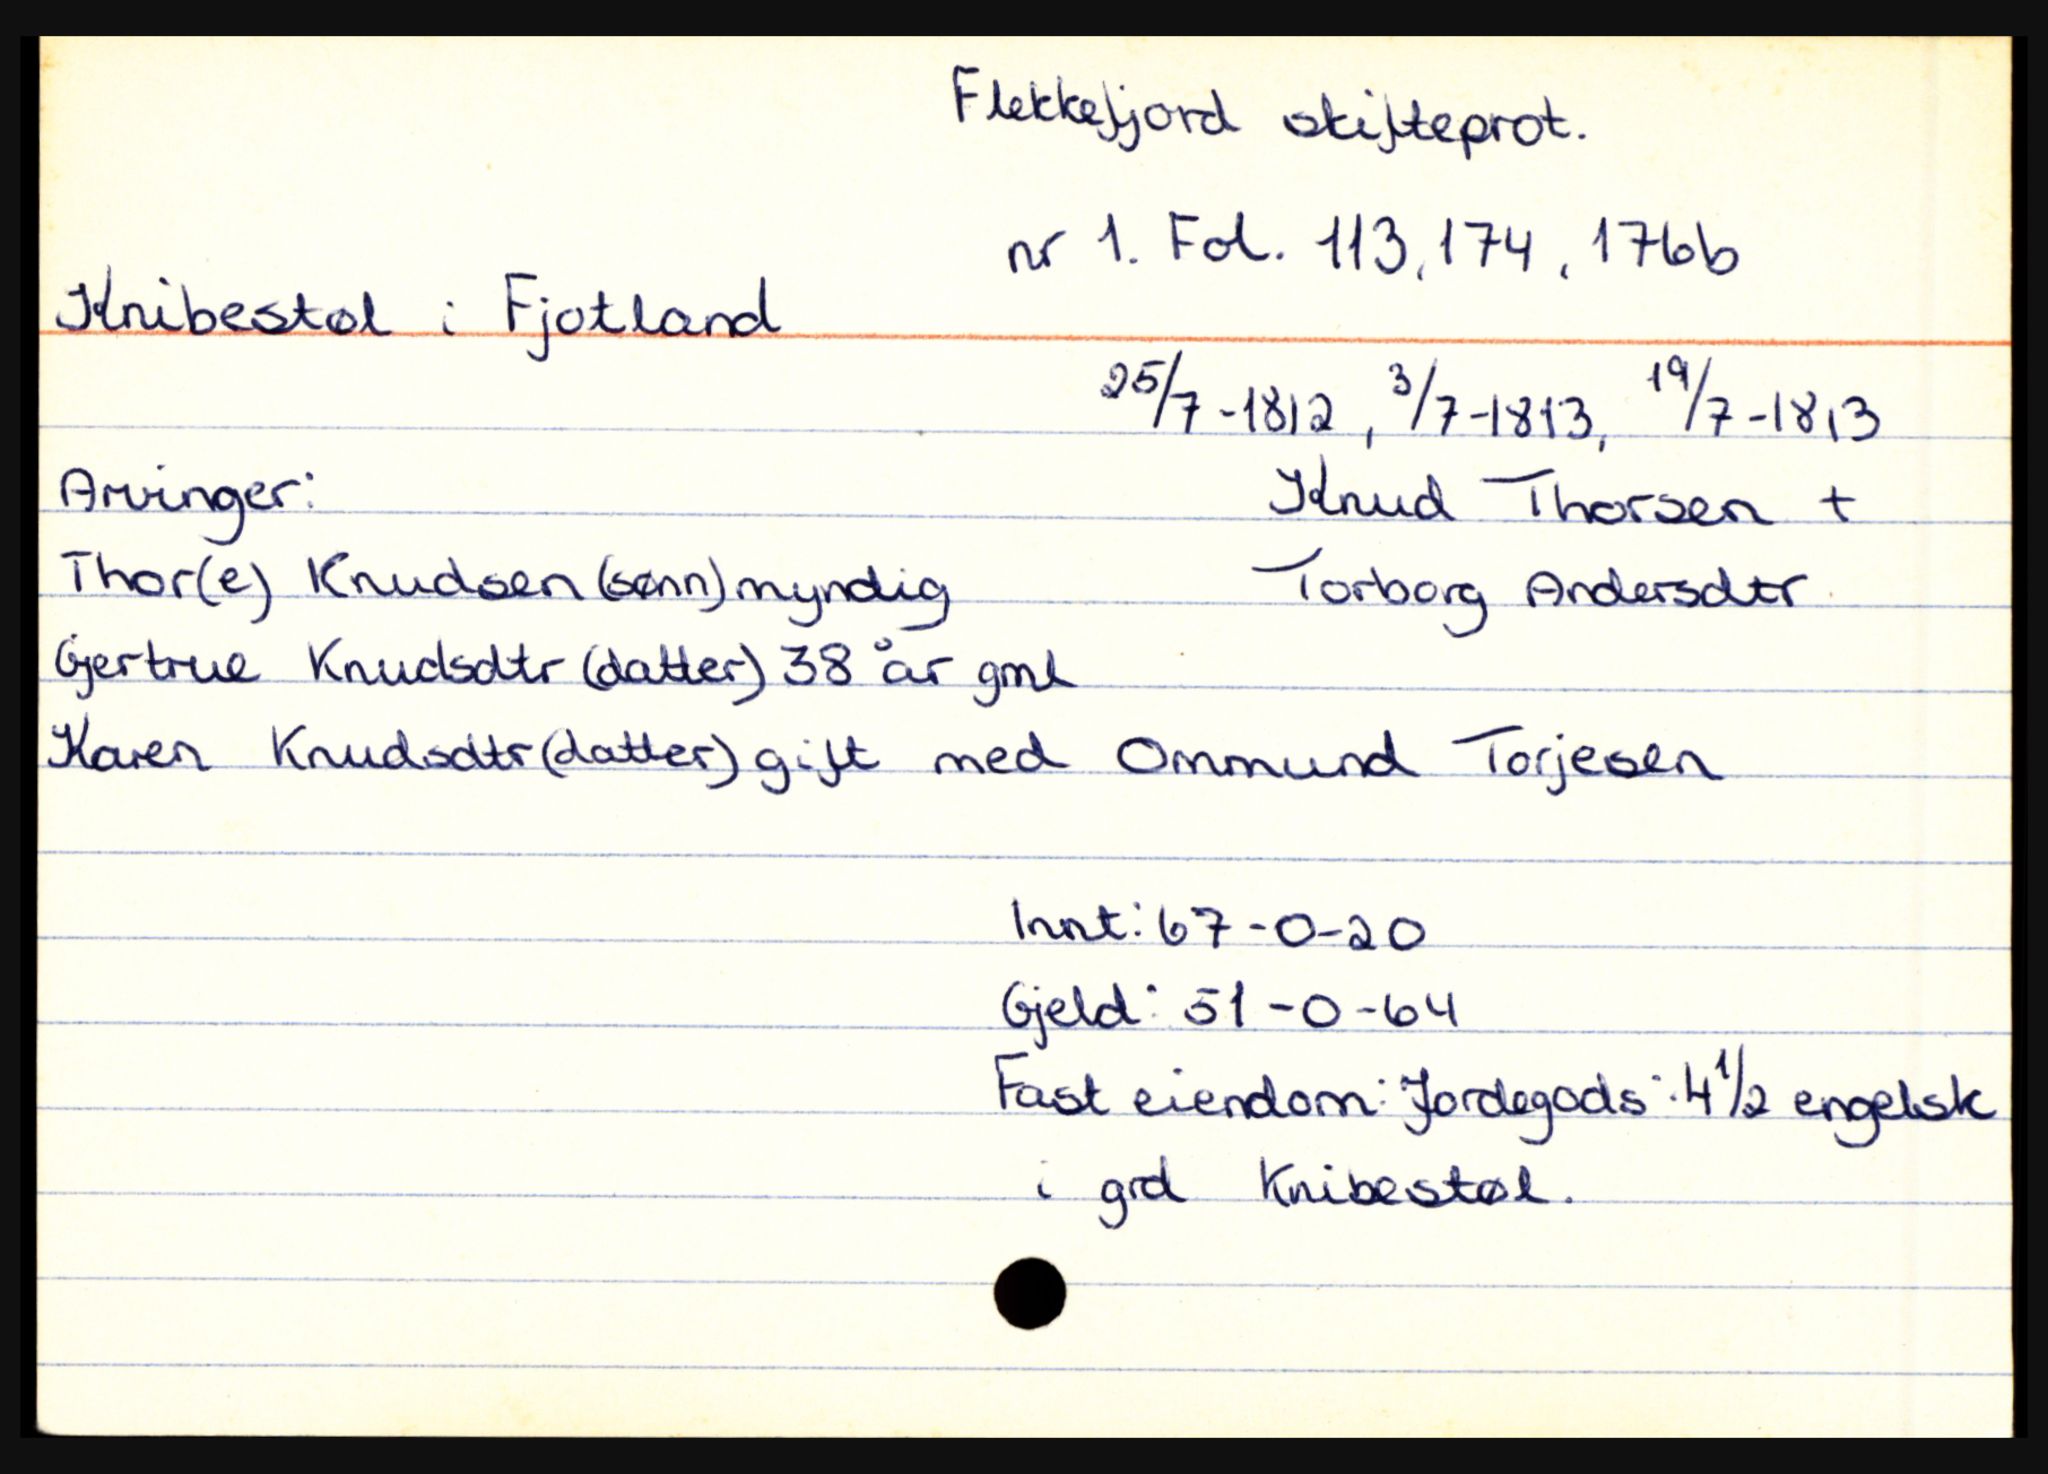 Flekkefjord skifteprot.
nr 1. Fol. 113, 174, 176b
Knibestøl i Fjotland
25/7-1812, 3/7-1813, 19/7-1813
Arvinger: Knud Thorsen +
Thor(e) Knudsen (sønn) myndig Torborg Andersdtr
Gjertrue Knudsdtr (datter) 38 år gml
Karen Knudsdtr (datter) gift med Ommund Torjesen
Innt: 67-0-20
Gjeld: 51-0-64
Fast eiendom: Jordegods: 4 1/2 engelsk
i grd Knibestøl.